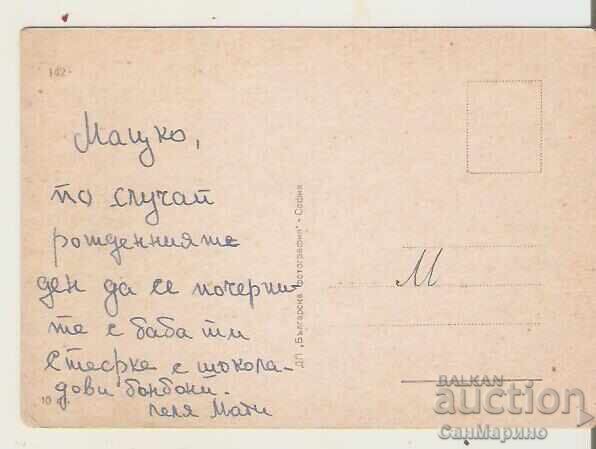 142.
Мацко,
по случай
рожденният
ден да се почерпи-
те с баба ти
с шокола-
дови бонбони.
леля Мати
10 ст.
ДП „Българска фотография“ - София
М
BALKAN
auction
СанМарино